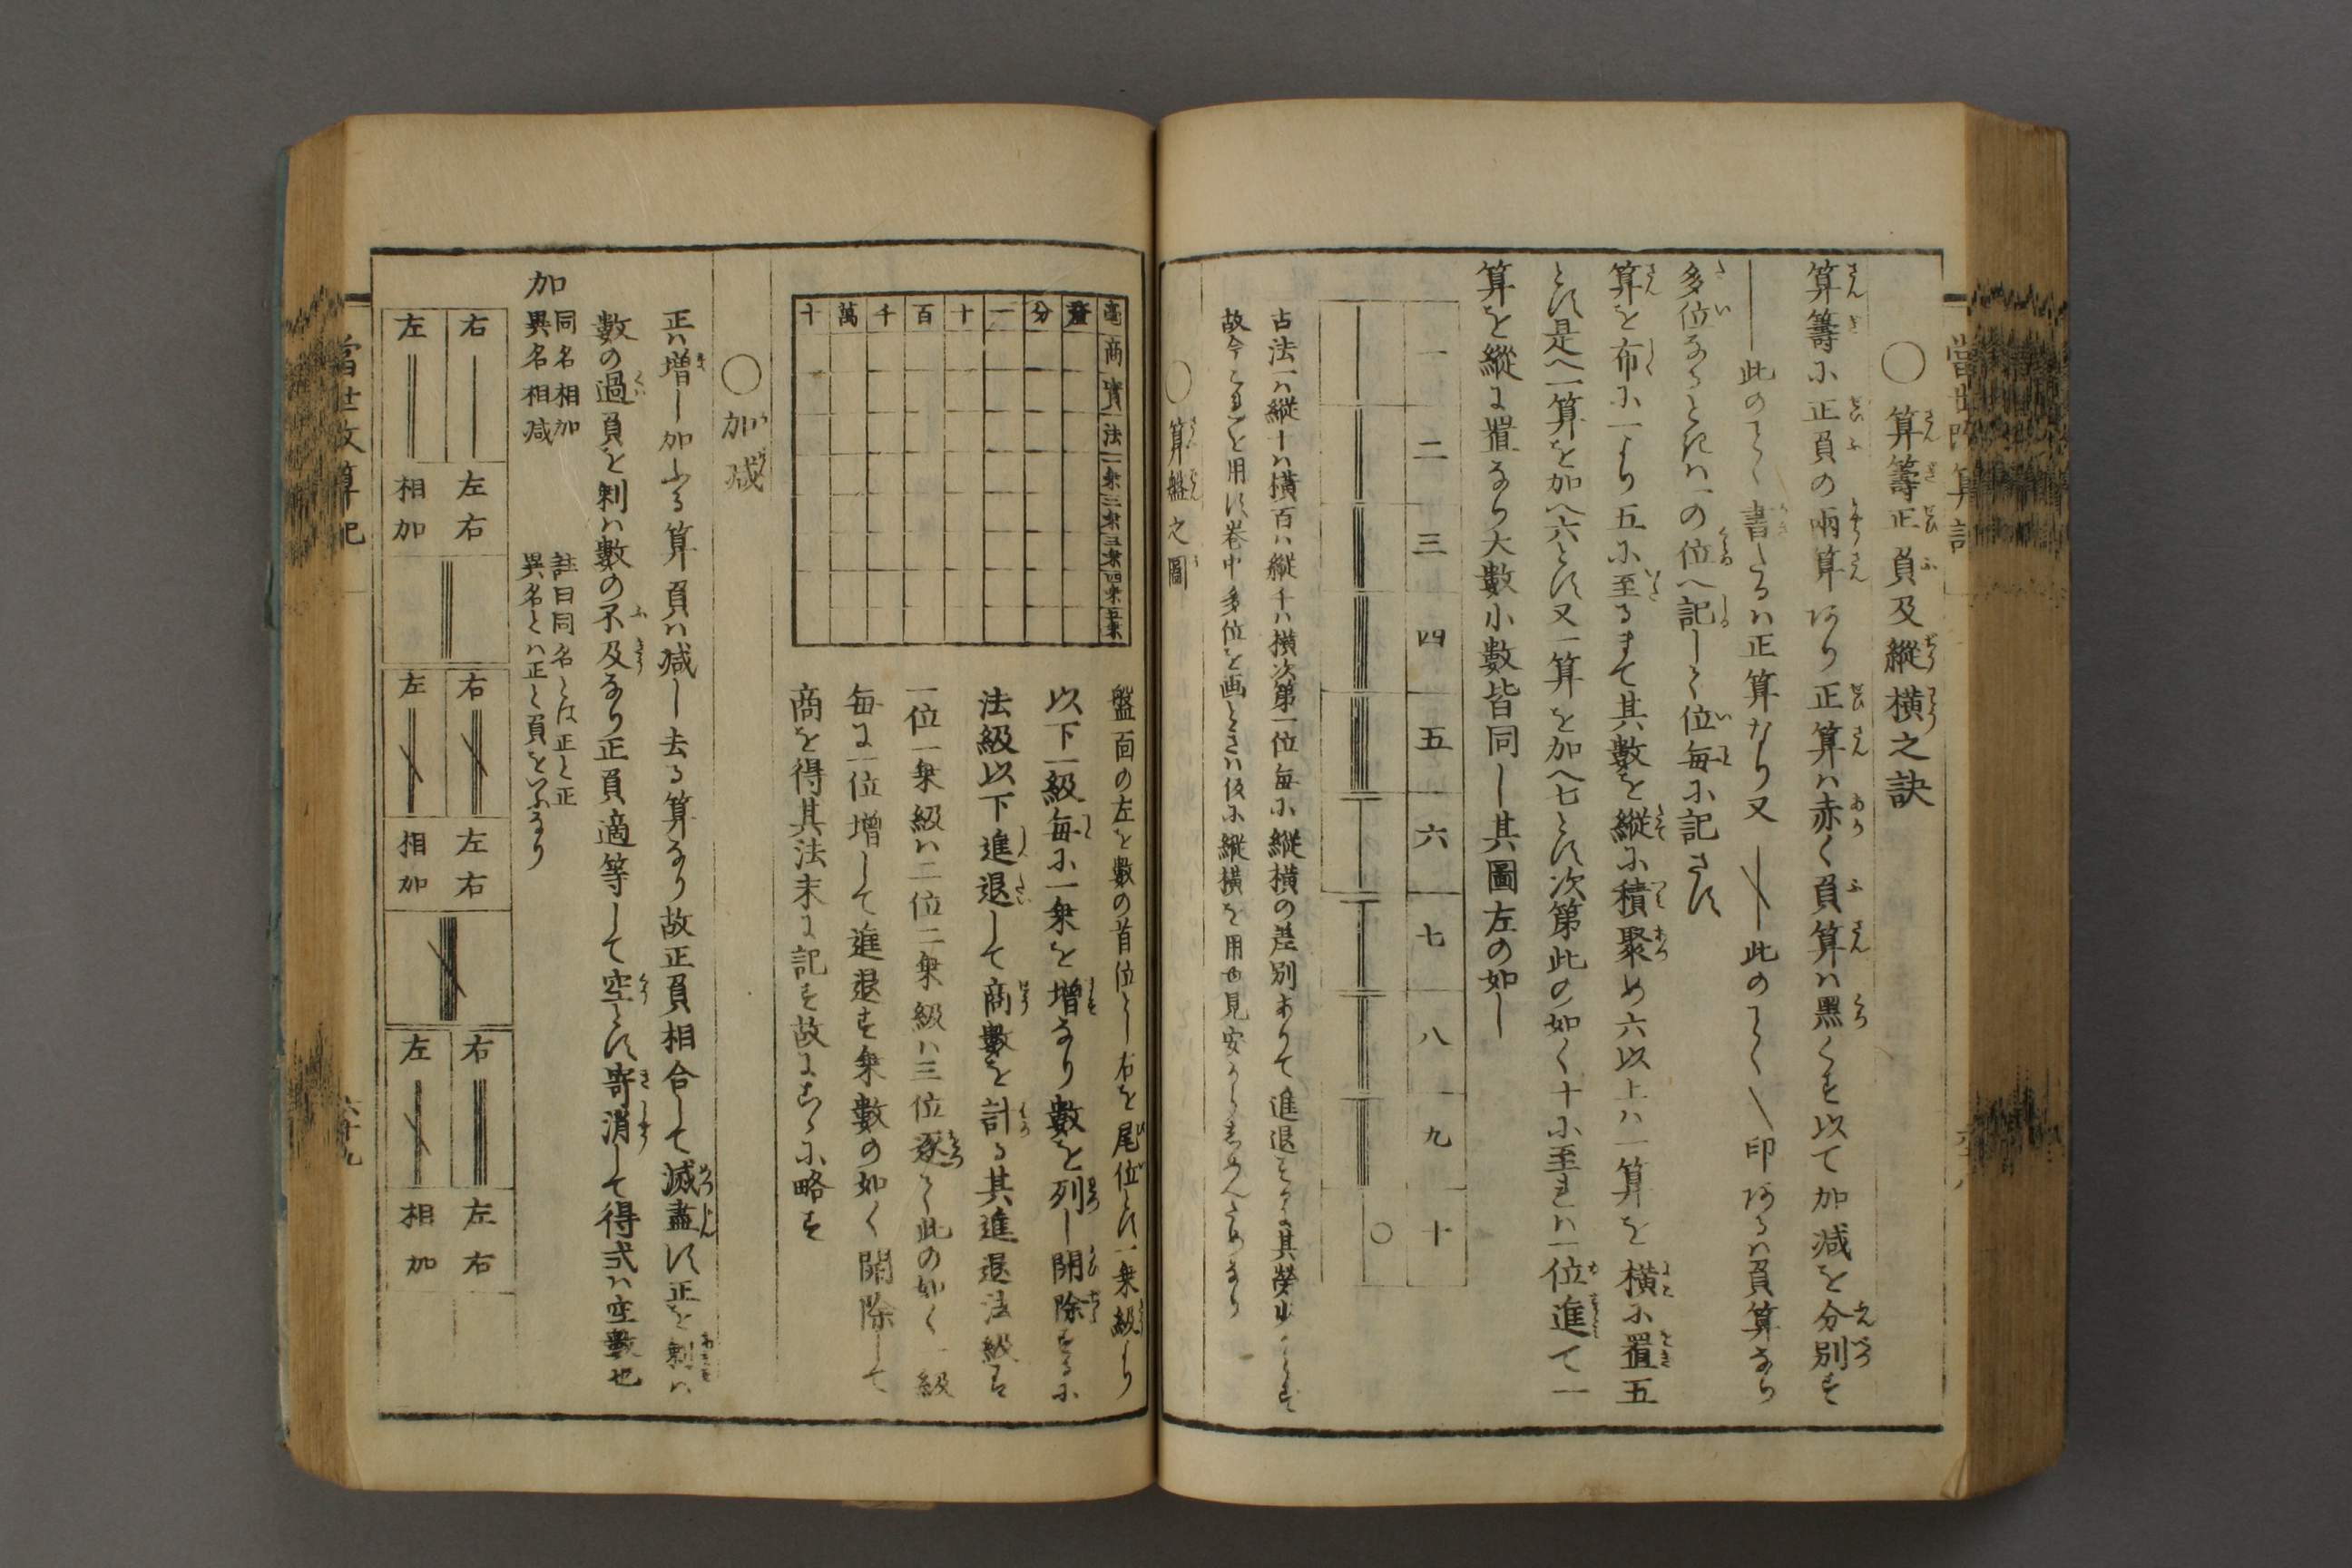 ○算籌正負及縱横之訣
算籌に正負の兩算あり正算ハ赤く負算ハ黒くを以て加減を分別す
此のことく書たるハ正算なり又 此のことく＼印あるハ負算なり
多位なるときハ一の位へ記して位毎に記さす
算を布に一より五に至るまて其數を縱に積聚め六以上ハ一算を横に置五
とす是へ一算を加へ六とす又一算を加へ七とす次第此の如く十に至れハ一位進て一
算を縱に置なり大數小數皆同し其圖左の如し
一 二 三 四 五 六 七 八 九 十
〇
古法一ハ縱十ハ横百ハ縱千ハ横次第一位毎に縱横の差別ありて進退
故今これを用す巻中多位を画ときハ仮に縱横を用ゆ見安からしめんためなり
○算盤之圖
毫 釐 分 一 十 百 千 萬 十
商 實 法 二乗 三乗 四乗 五乗
盤面の左を數の首位とし右を尾位とす一乗級より
以下一級毎に一乗を増なり數を列し開除するに
法級以下進退して商數を計る其進退法級を
一位一乗級ハ二位二乗級ハ三位逐て此の如く一級
毎に一位増して進退す乗數の如く開除して
商を得其法末に記す故にこゝに略す
○加減
正ハ増し加ふる算負ハ減し去る算なり故正負相合して滅盡す正を剩ハ
數の過負を剩ハ數の不及なり正負適等して空とす寄消して得式ハ空數也
加
同名相加
異名相减
註曰同名とは正と正
異名とハ正と負をいふなり
右
左
左右
相加
右
左
左右
相加
右
左
左右
相加
當世改算記
六十九